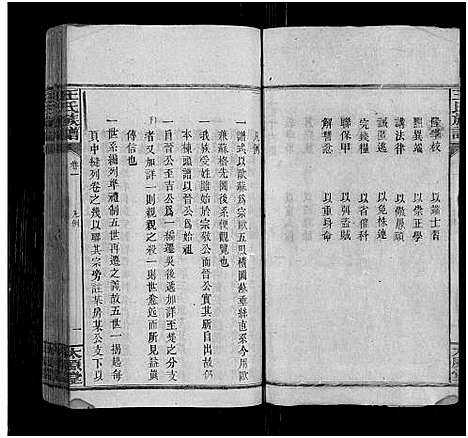 王氏族譜
隆學校 以端士習
黜異端 以崇正學
講法律 以儆愚頑
誡匿逃 以免株連
完錢糧 以省催科
聯保甲 以弭盜賊
解讐忿 以重身命
凡例
一譜式以歐蘇為宗歐五世橫圖蘇垂絲直式今用歐
兼蘇格先圖後系便觀覽也
一我族受姓雖始於宗敬公而晉公實其所自出故仍
本棟頭譜以晉公為始祖
一自晉公至吉公為一搨遷吳後止詳至楚之分支
者又加詳焉一則親親之殺一則世愈遠而所見益異
傳信也
一世系編列準禮制五世再遷之義故五世一搨起每
頁中樾列卷之幾以聯其宗旁註某房某公支下以
王氏族譜
卷一
凡例
一
太原堂
太原堂